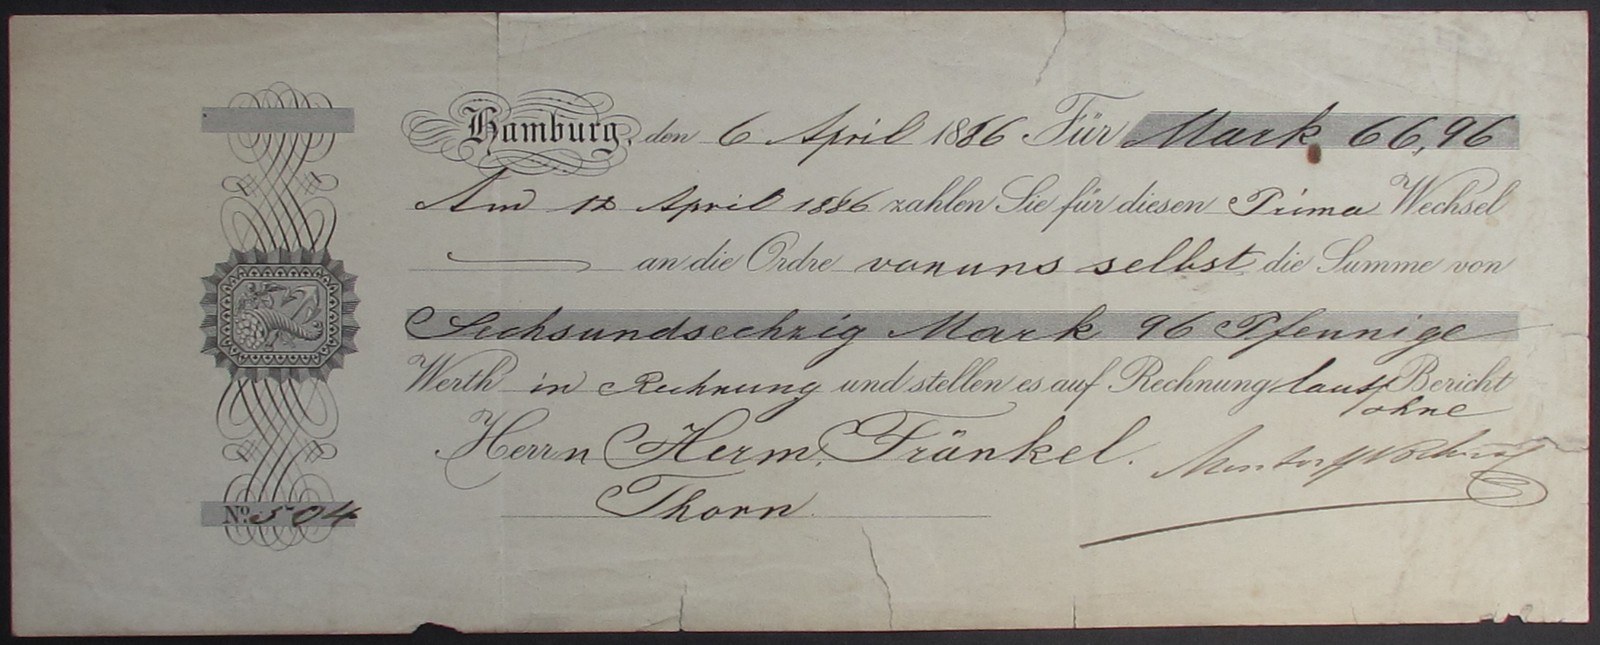 Hamburg, den 6 April 1886 Für Mark 66,96
Am 12 April 1886 zahlen Sie für diesen Prima Wechsel
an die Ordre von uns selbst die Summe von
Sechsundsechzig Mark 96 Pfennige
Werth in Rechnung und stellen es auf Rechnung laut Bericht
ohne
Herrn Herm. Fränkel.
Thorn.
No. 504